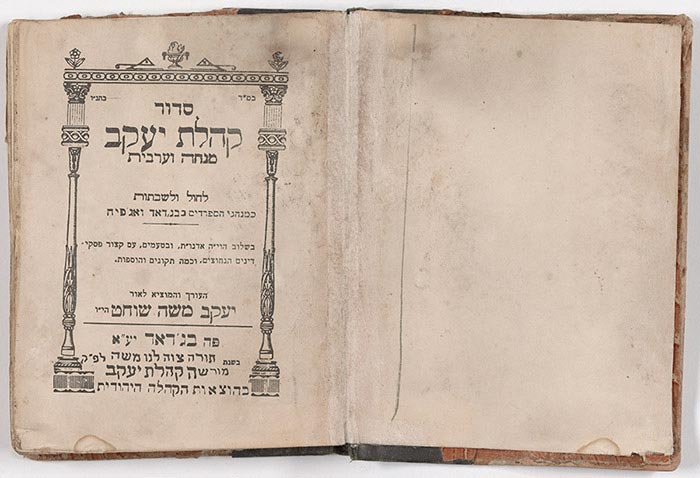 במ״ר בהנ״ו
סדור
קהלת יעקב
מנחה וערבית
לחול ולשבתות
כמנהגי הספרדים בבג׳דאד ואגפיה
בשלוב הוי״ה אדנו״ת, ובטעמים, עם קצור פסקי־
דינים הנחוצים, וכמה תקונים והוספות.
העורך והמוציא לאור
יעקב משה שוחט הי״ו
פה בג׳דאד יע״א
בשנת תורה צוה לנו משה לפ״ק
מורשה קהלת יעקב
בהוצאות הקהלה היהודית